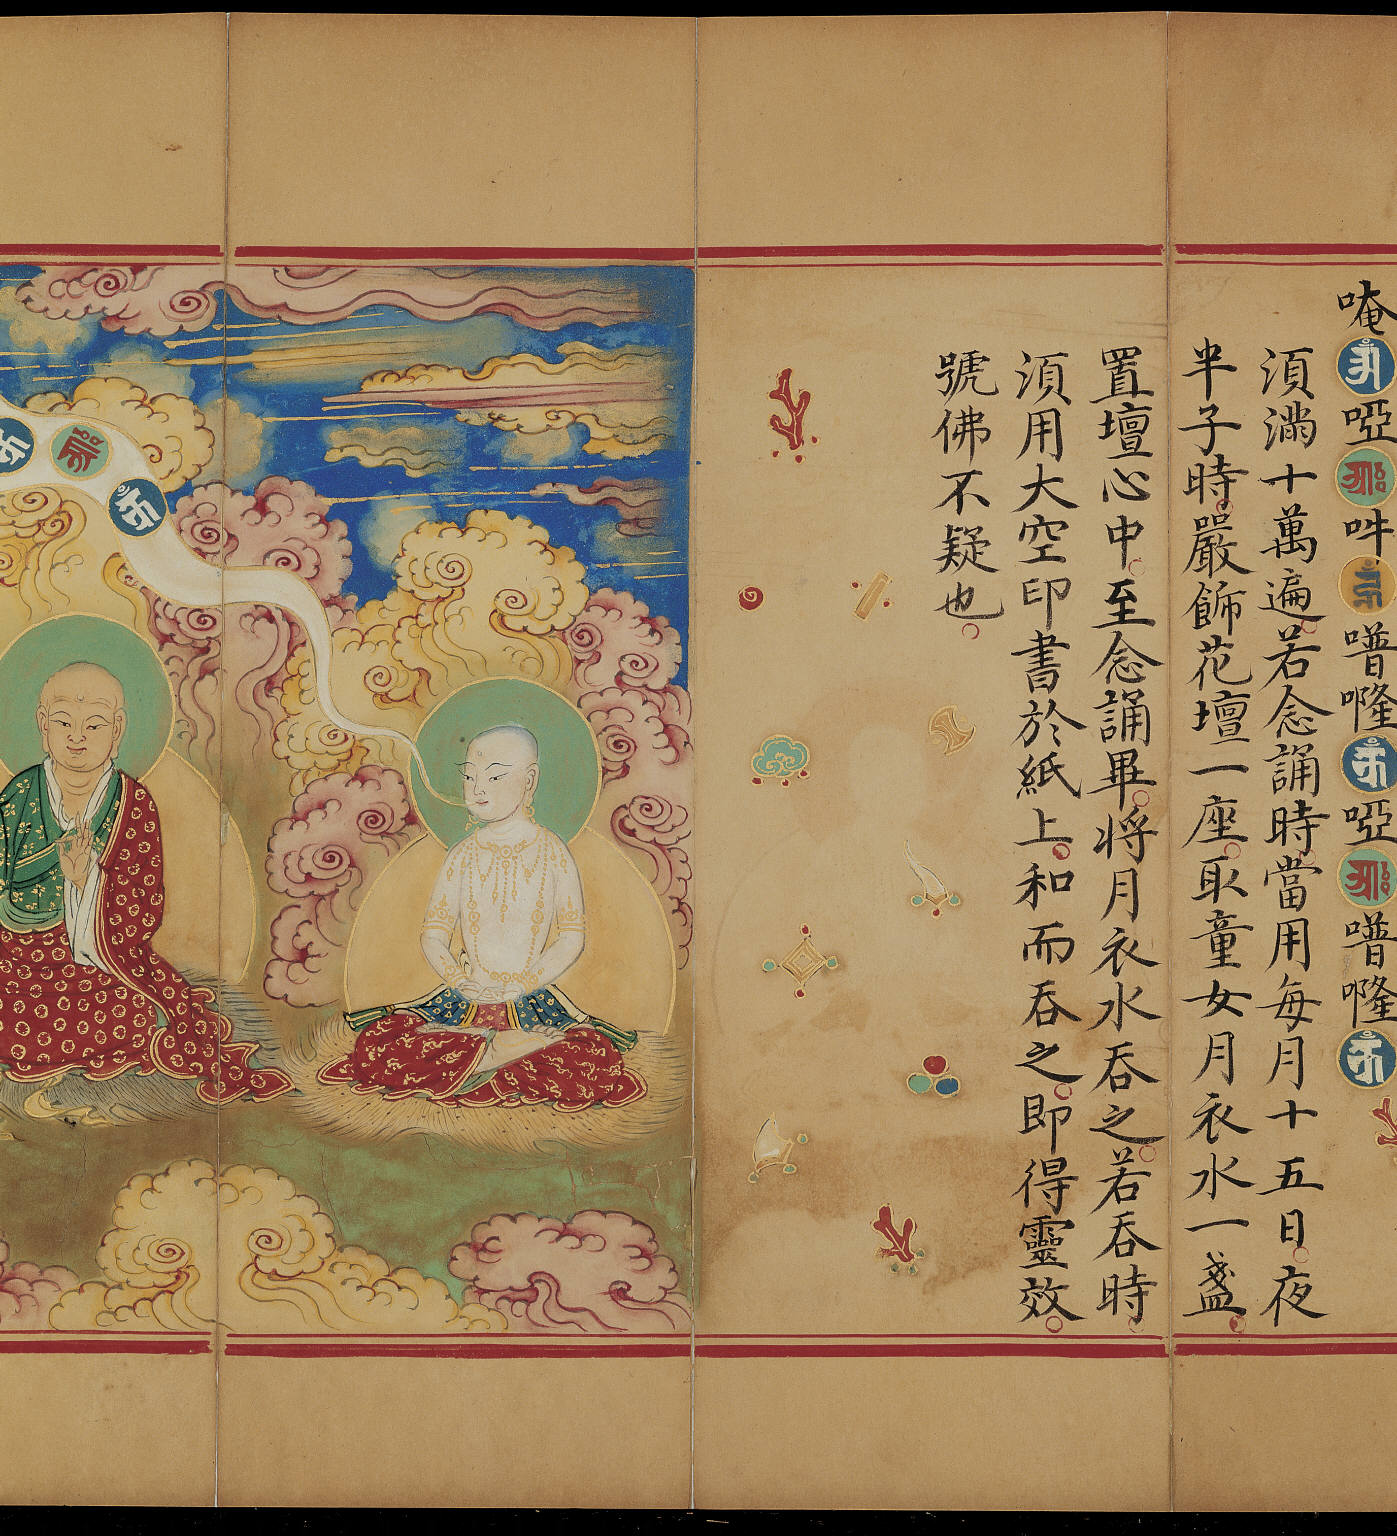 唵啞吽噆㘕啞噆㘕
須滿十萬遍若念誦時當用每月十五日夜
半子時嚴飾花壇一座取童女月衣水一盞
置壇心中至念誦畢將月衣水吞之若吞時
須用大空印書於紙上和而吞之即得靈效
號佛不疑也